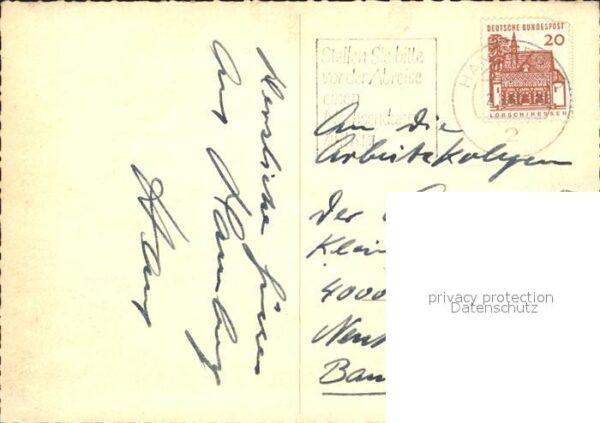 Herzliche Grüsse
aus Hamburg
Hans
Stellen Sie bitte
vor der Abreise
einen
DEUTSCHE BUNDESPOST
20
LORSCH/HESSEN
HA
2
An die
Arbeitskolegen
Der
Klei
4000
Neus
Ban
privacy protection
Datenschutz